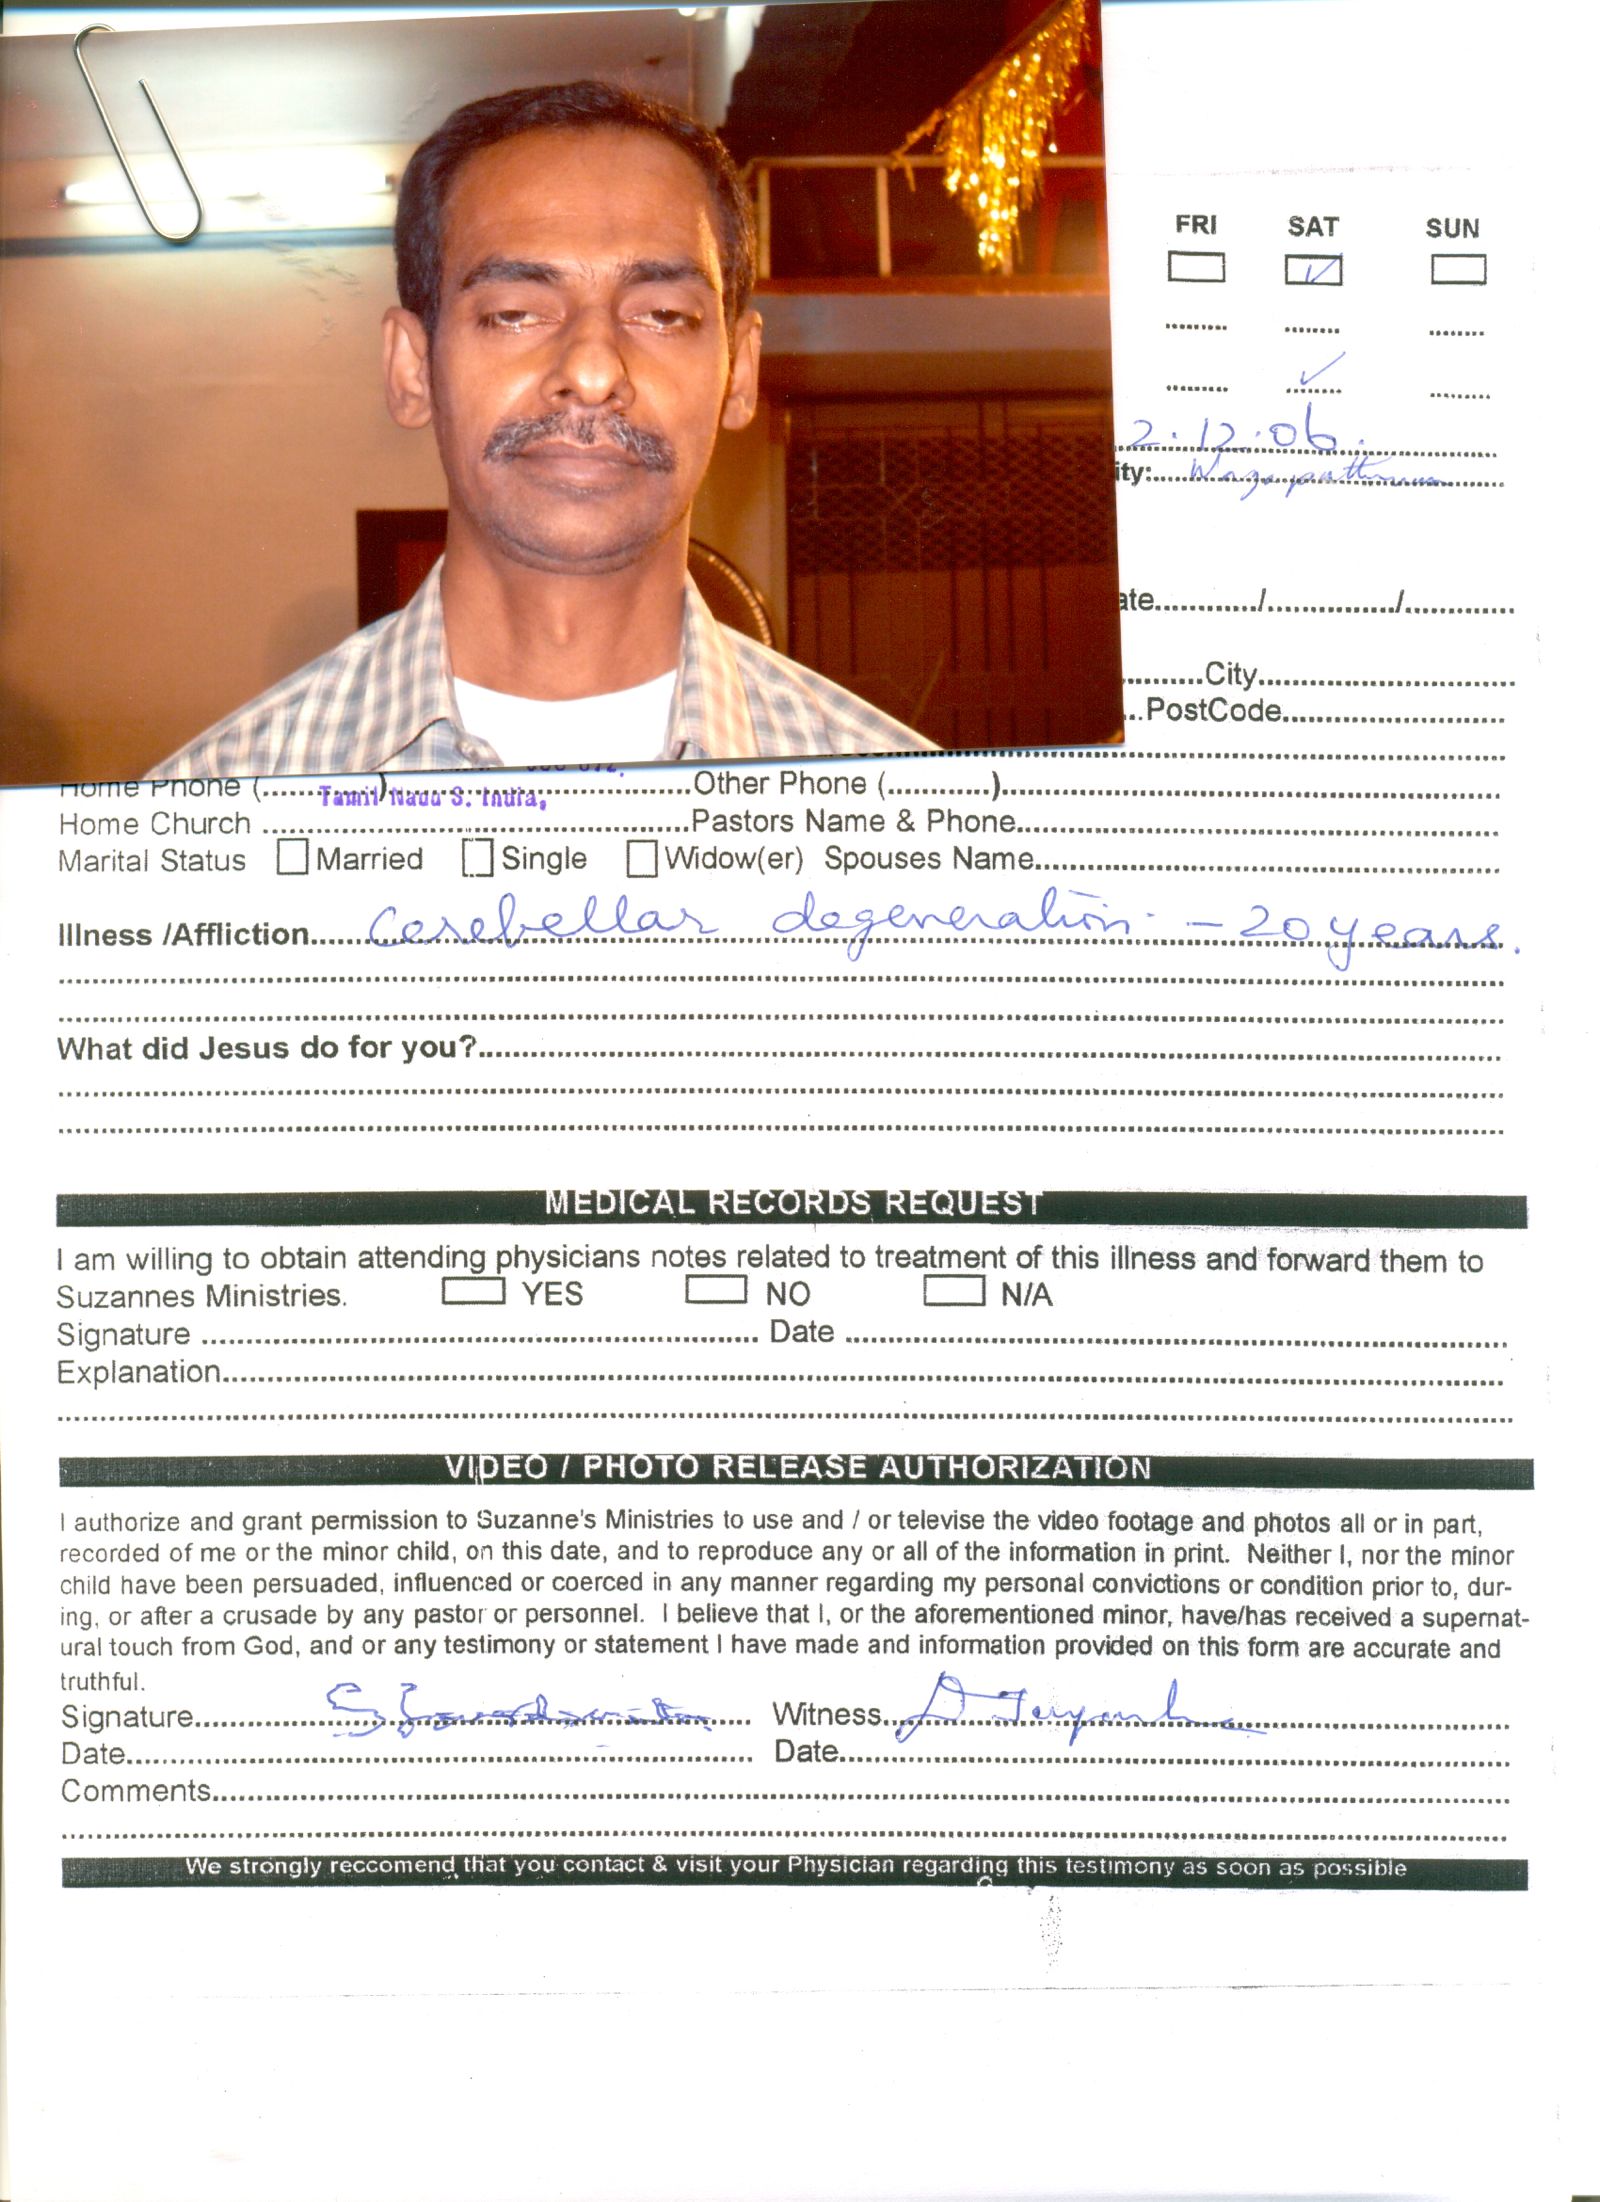 FRI SAT SUN
2.12.06.
ity:
ate............/................/.............
City
PostCode
Home Phone (.......) Other Phone (...........)
Tamil Nadu S. India,
Home Church Pastors Name & Phone
Marital Status Married Single Widow(er) Spouses Name
Illness /Affliction cerebellar degeneration - 20 years.
What did Jesus do for you?
MEDICAL RECORDS REQUEST
I am willing to obtain attending physicians notes related to treatment of this illness and forward them to
Suzannes Ministries. YES NO N/A
Signature Date
Explanation
VIDEO / PHOTO RELEASE AUTHORIZATION
I authorize and grant permission to Suzanne's Ministries to use and / or televise the video footage and photos all or in part,
recorded of me or the minor child, on this date, and to reproduce any or all of the information in print. Neither I, nor the minor
child have been persuaded, influenced or coerced in any manner regarding my personal convictions or condition prior to, dur-
ing, or after a crusade by any pastor or personnel. I believe that I, or the aforementioned minor, have/has received a supernat-
ural touch from God, and or any testimony or statement I have made and information provided on this form are accurate and
truthful.
Signature Witness
Date Date
Comments
We strongly reccomend that you contact & visit your Physician regarding this testimony as soon as possible